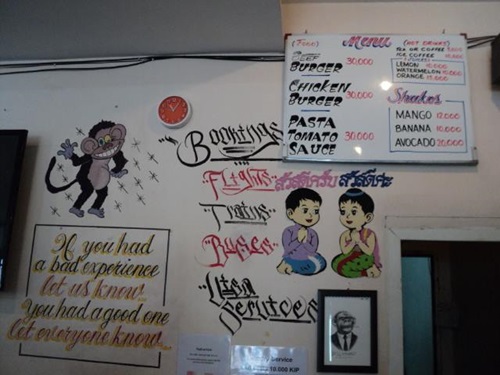 (Food)
Menu
(HOT DRINKS)
BEEF
BURGER 30,000
TEA OR COFFEE
ICE COFFEE
LEMON 10.000
WATERMELON 10.000
ORANGE
CHICKEN
BURGER 30.000
Shakes
PASTA
TOMATO 30.000
SAUCE
MANGO 12.000
BANANA 10.000
AVOCADO 20.000
Bookings
Flights
Trains
Buses
Visa
Services
สวัสดีครับ สวัสดีค่ะ
If you had
a bad experience
let us know...
You had a good one
let everyone know...
Service
10.000 KIP